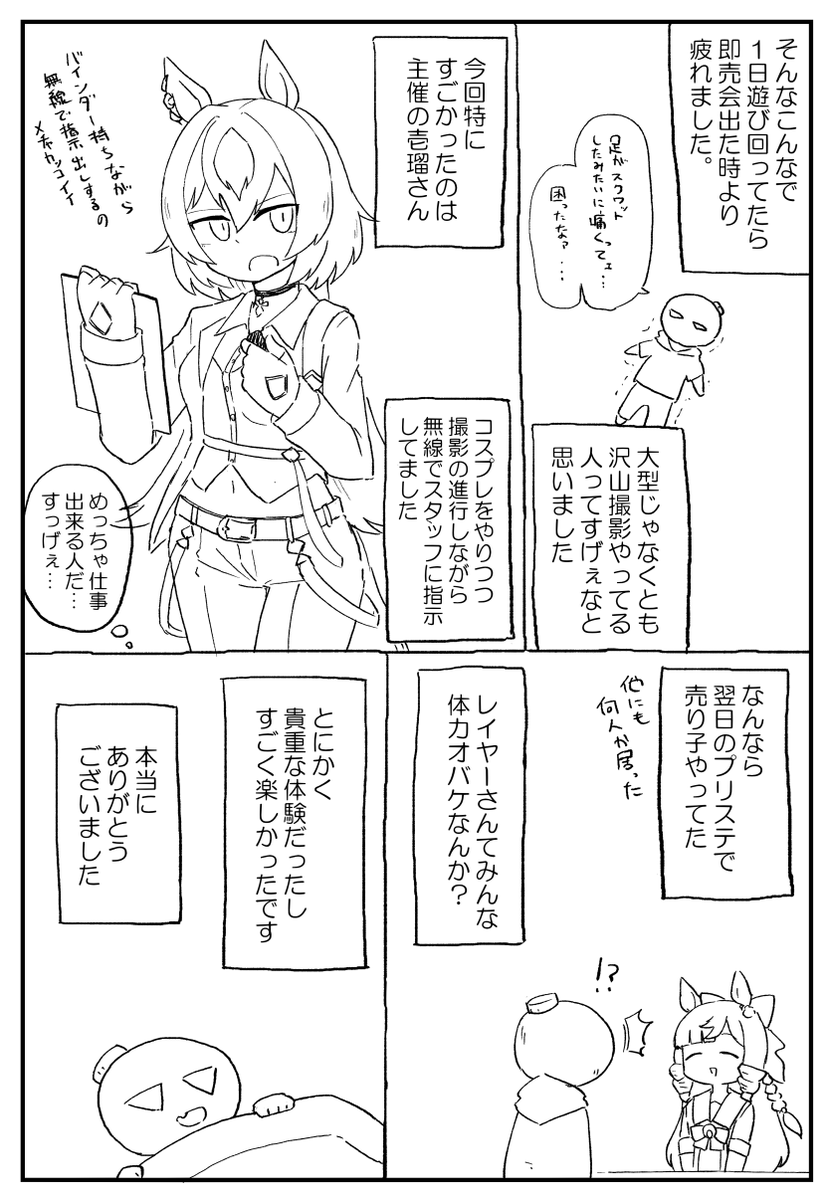 そんなこんなで
1日遊び回ってたら
即売会出た時より
疲れました。
足がスクワット
したみたいに痛くってェ…
困ったなァ…
大型じゃなくとも
沢山撮影やってる
人ってすげぇなと
思いました
今回特に
すごかったのは
主催の壱瑠さん
バインダー持ちながら
無線で指示出しするの
メチャカッコイイ
コスプレをやりつつ
撮影の進行しながら
無線でスタッフに指示
してました
めっちゃ仕事
出来る人だ…
すっげぇ…
なんなら
翌日のプリステで
売り子やってた
他にも
何人か居った
レイヤーさんてみんな
体力オバケなんか？
!?
とにかく
貴重な体験だったし
すごく楽しかったです
本当に
ありがとう
ございました